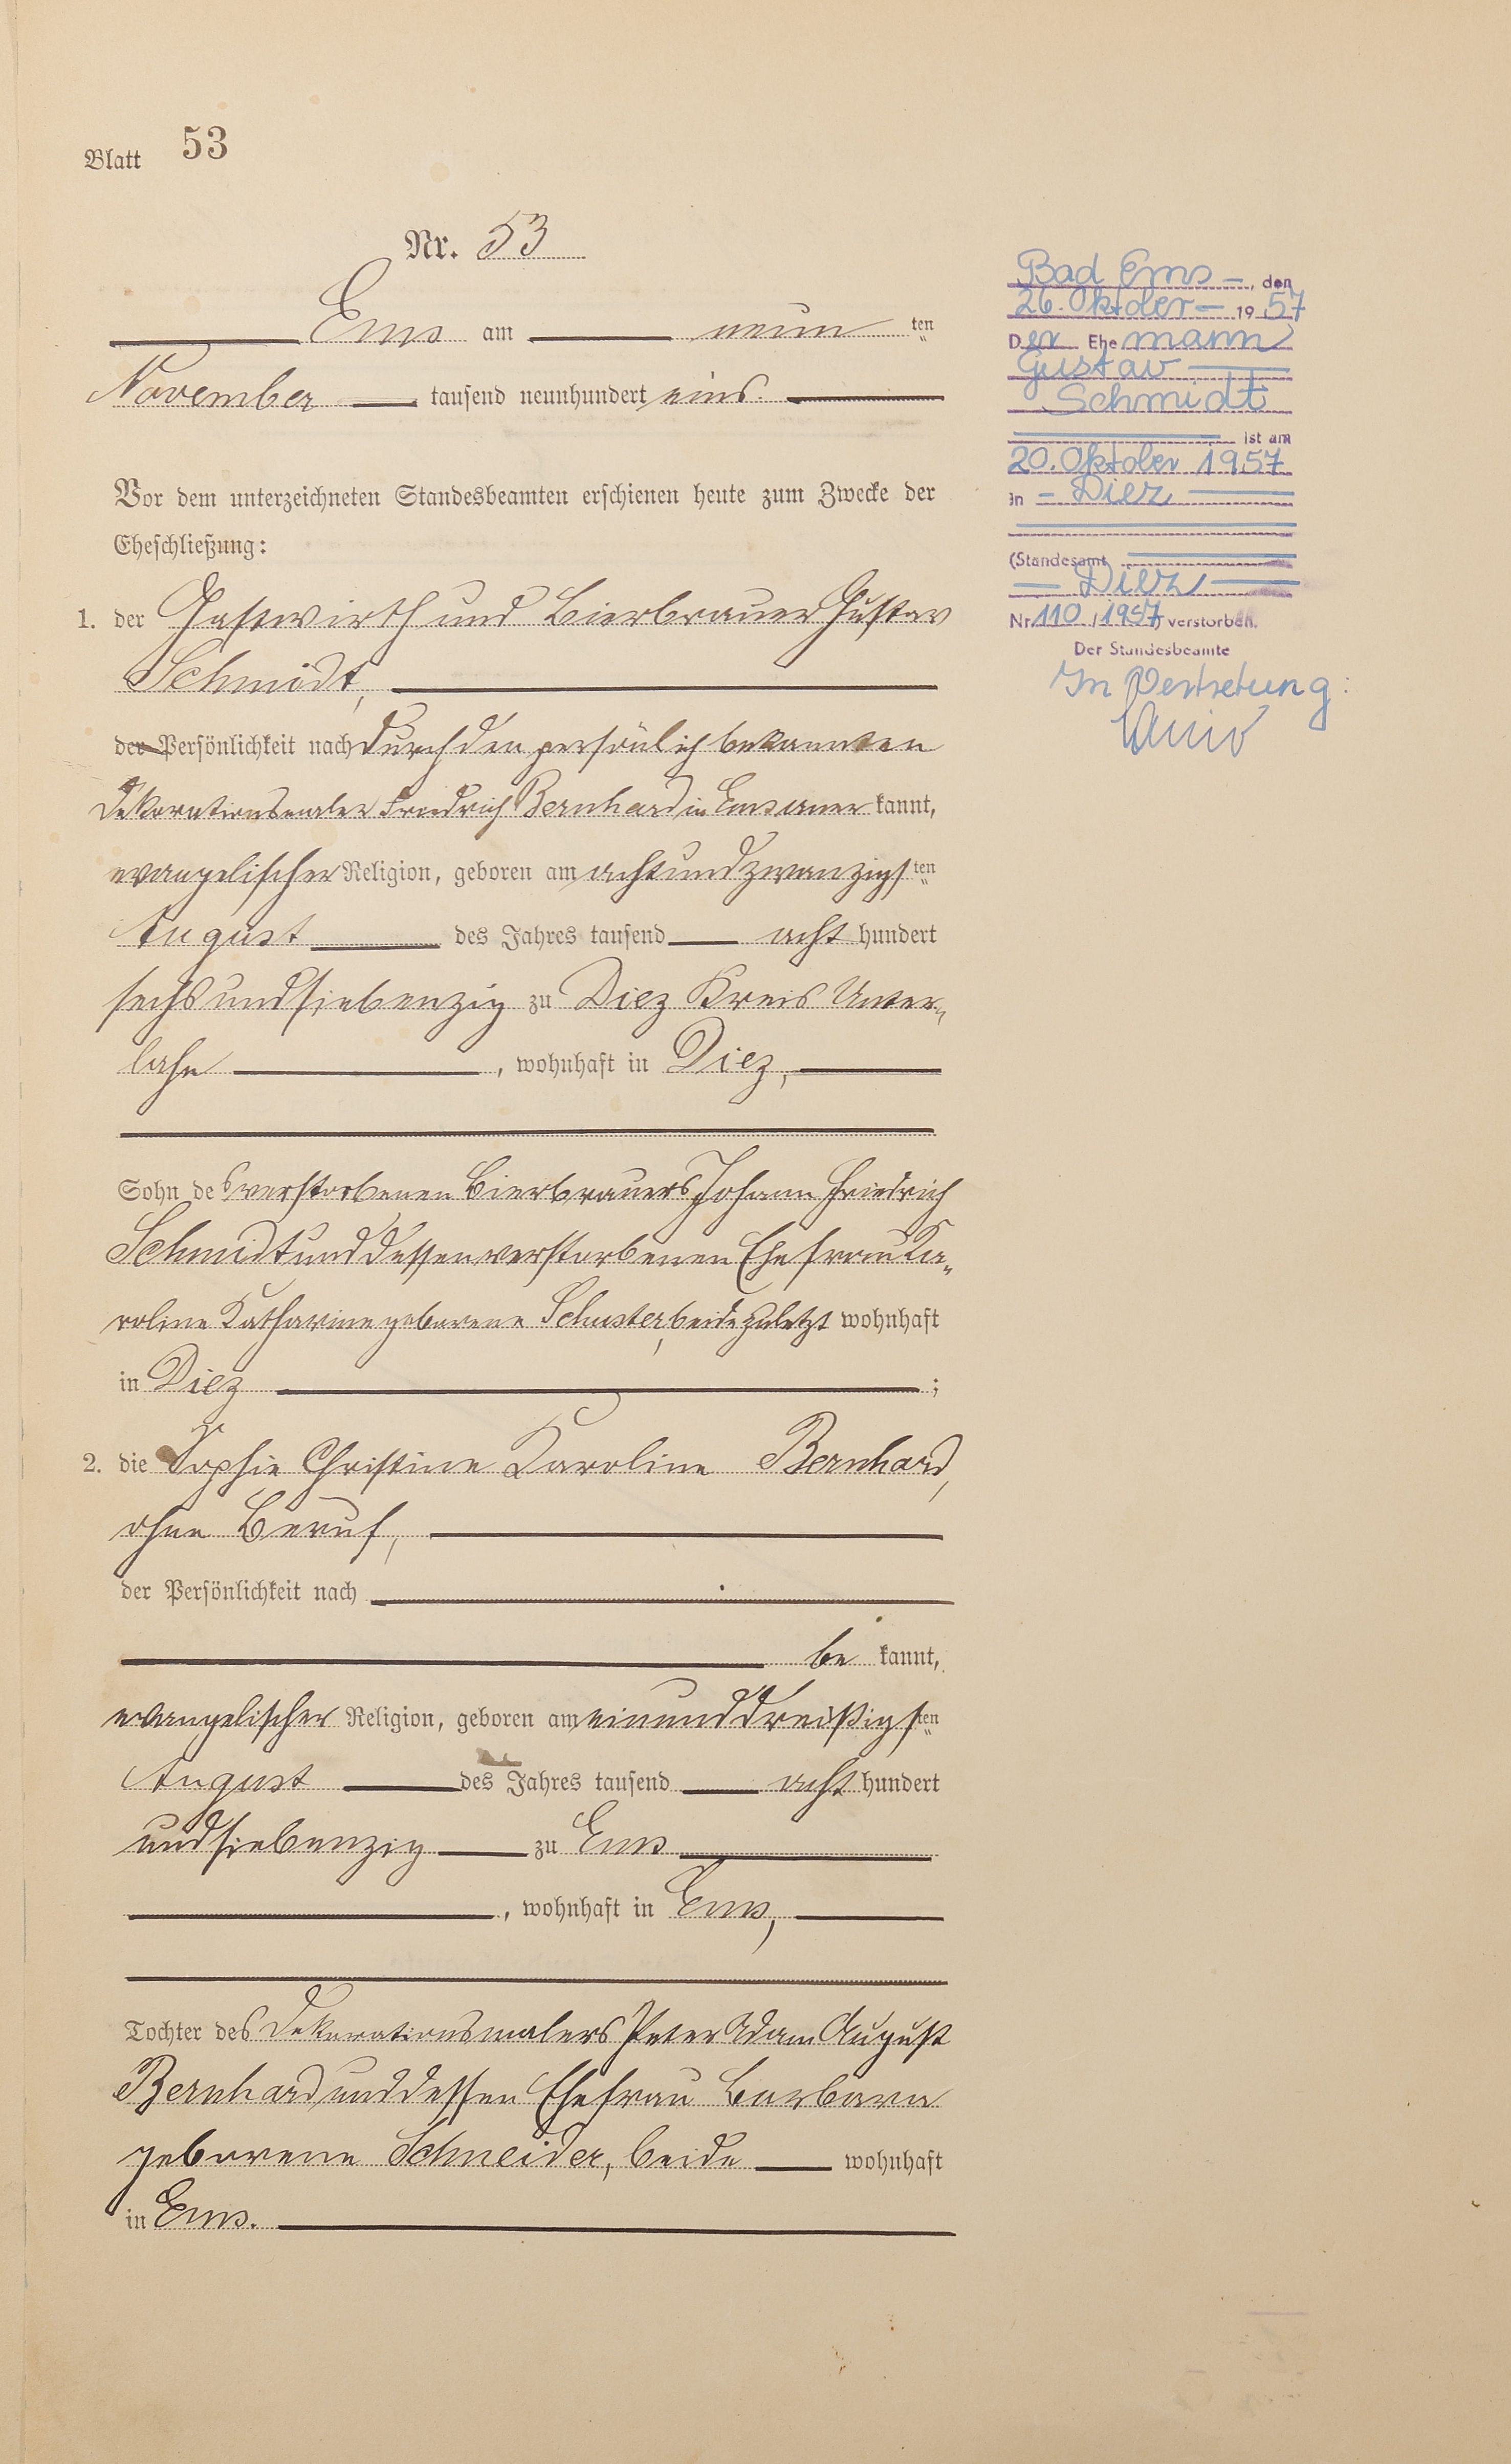 Blatt 53
Nr. 53
Ems am neun ten
November tausend neunhundert eins.
Vor dem unterzeichneten Standesbeamten erschienen heute zum Zwecke der
Eheschließung:
1. der Gastwirth und Bierbrauer Gustav
Schmidt,
der Persönlichkeit nach durch den persönlich bekannten
Dekorationsmaler Friedrich Bernhard in Ems aner kannt,
evangelischer Religion, geboren am achtundzwanzigsten
August des Jahres tausend acht hundert
sechsundsiebenzig zu Diez Kreis Unter-
lahn, wohnhaft in Diez,
Sohn des verstorbenen Bierbrauers Johann Friedrich
Schmidt und dessen verstorbenen Ehefrau Ka-
roline Katharine geborene Schuster, beide zuletzt wohnhaft
in Diez ;
2. die Sophie Christine Karoline Bernhard,
ohne Beruf,
der Persönlichkeit nach
be kannt,
evangelischer Religion, geboren am einunddreißigsten
August des Jahres tausend acht hundert
undsiebenzig zu Ems
, wohnhaft in Ems,
Tochter des Dekorationsmalers Peter Adam August
Bernhard und dessen Ehefrau Barbara
geborene Schneider, beide wohnhaft
in Ems.
Bad Ems, den
26. Oktober 1957
Der Ehemann
Gustav
Schmidt
ist am
20. Oktober 1957
in Diez
(Standesamt
Diez
Nr 110 / 1957) verstorben.
Der Standesbeamte
In Vertretung: